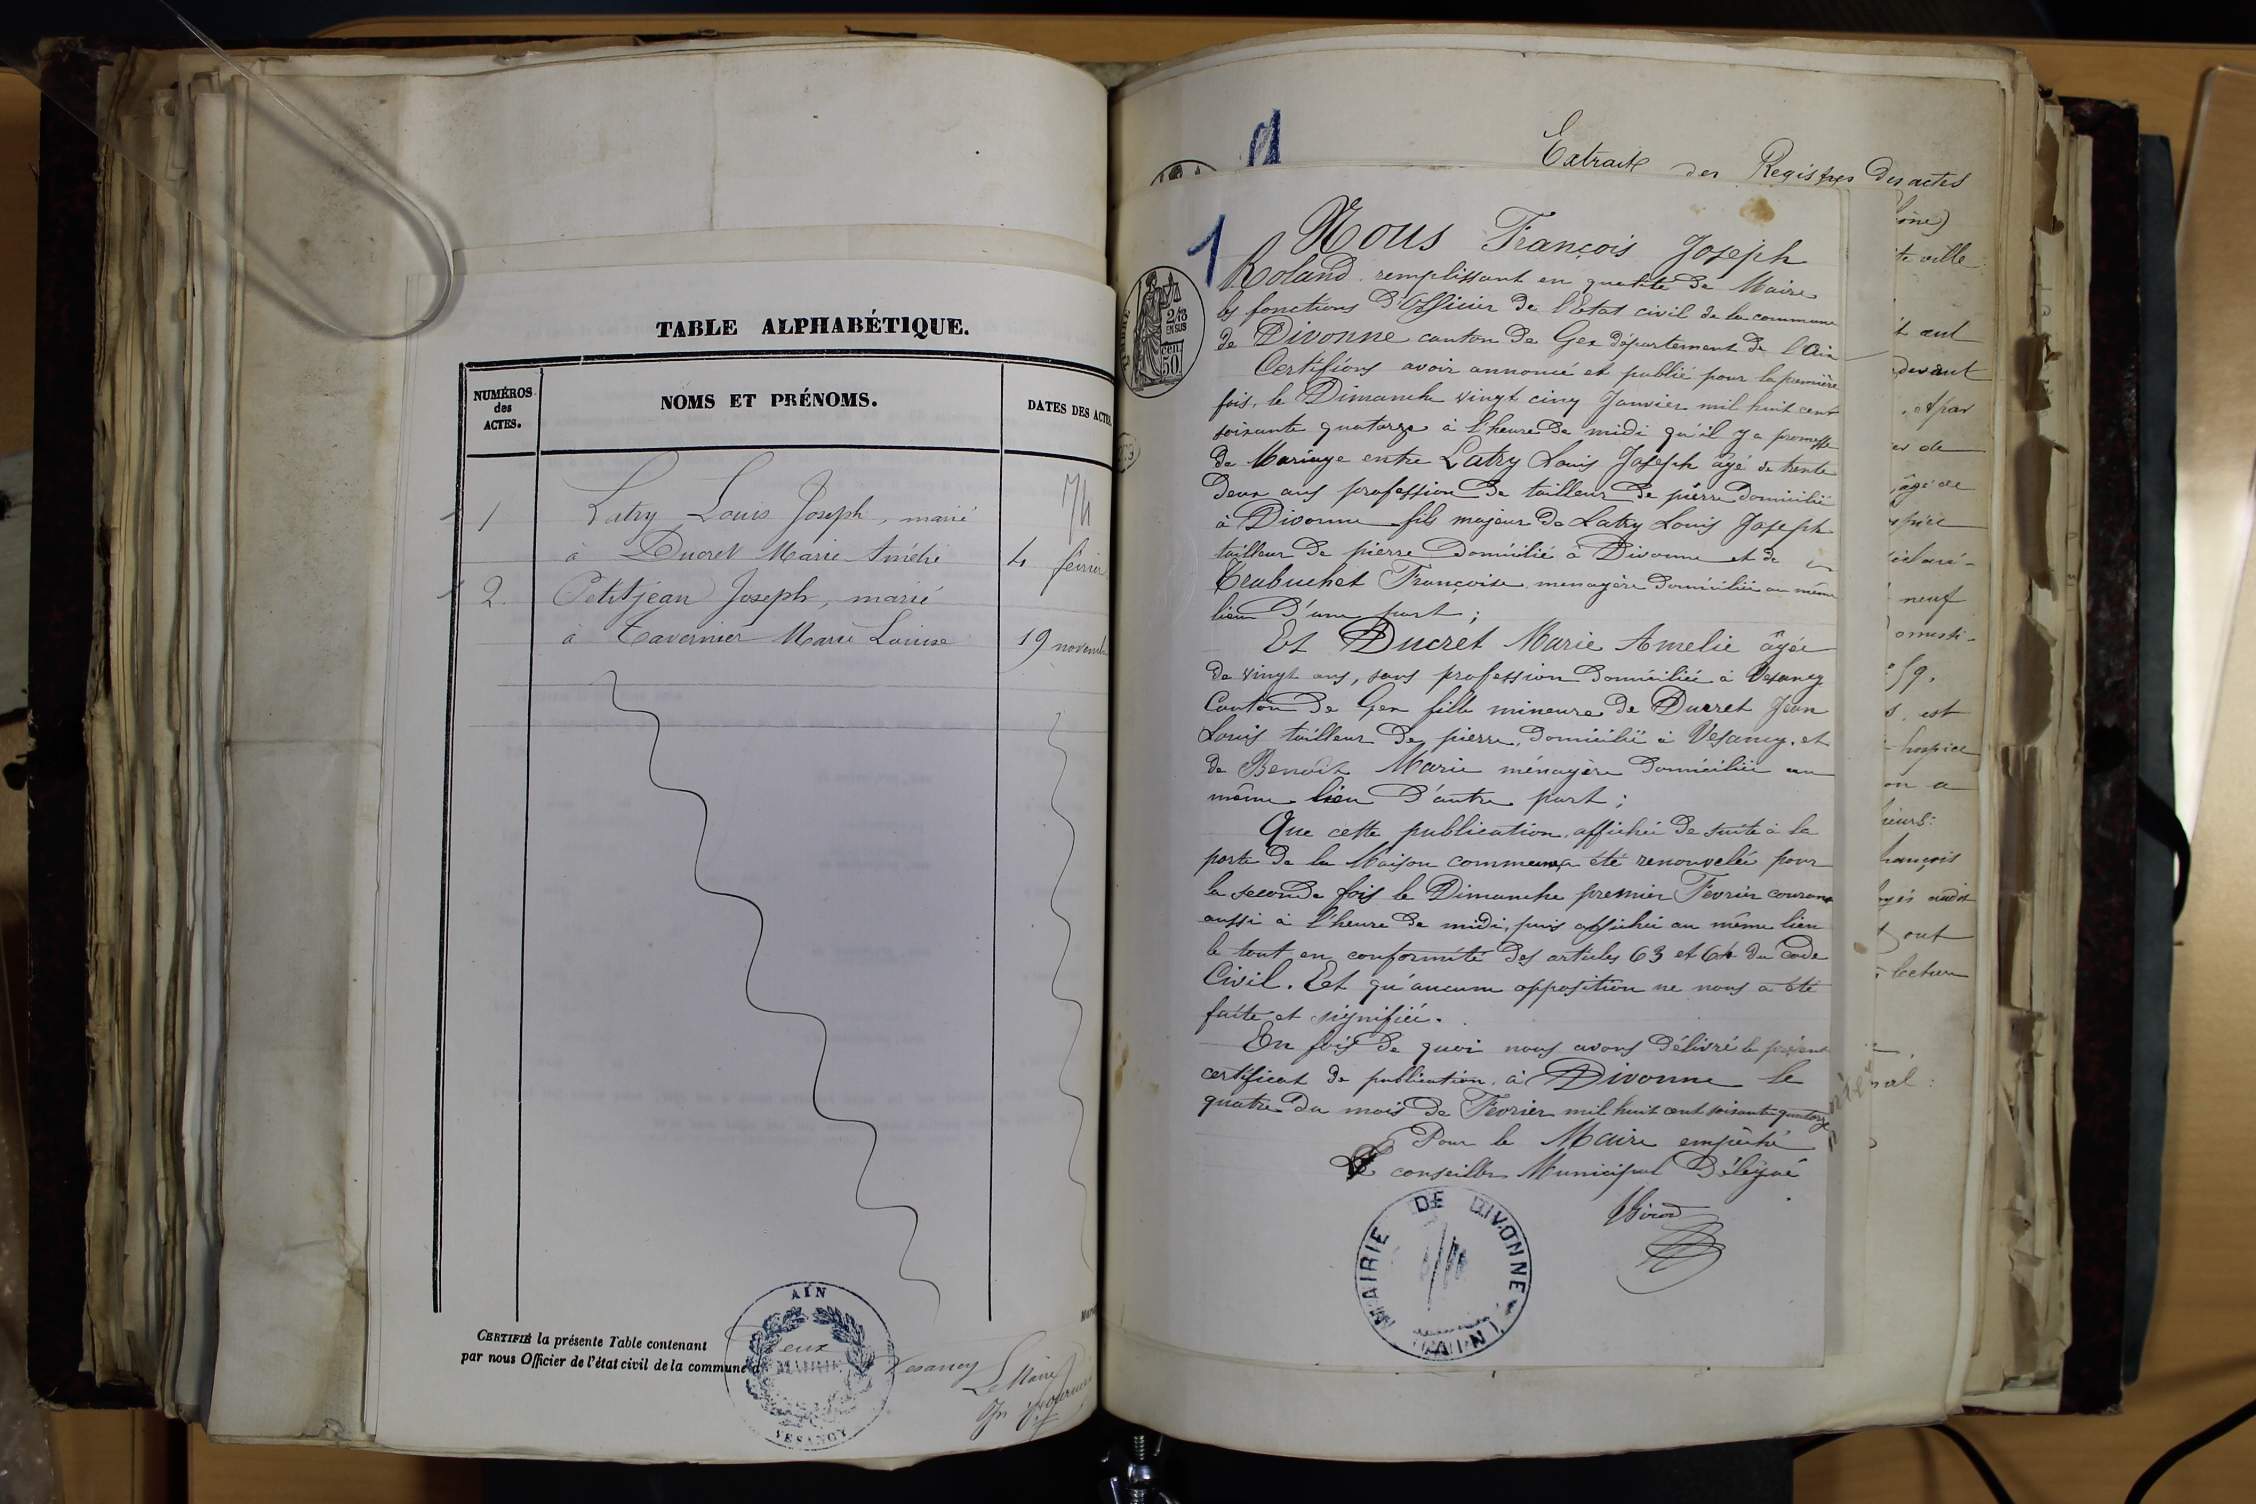 TABLE ALPHABÉTIQUE.
NUMÉROS
des
ACTES.
NOMS ET PRÉNOMS.
DATES DES ACTES
74
1 Latry Louis Joseph, marié
à Ducret Marie Amélie 4 février
2 Petitjean Joseph, marié
à Tavernier Marie Louise 19 novembre
CERTIFIÉ la présente Table contenant deux
par nous Officier de l'état civil de la commune d Vesancy
Le Maire
AIN
MAIRIE
VESANCY
Extrait des Registres des actes
1
Nous François Joseph
Roland remplissant en qualité de Maire
les fonctions d'Officier de l'Etat civil de la commune
de Divonne canton de Gex département de l'Ain
Certifions avoir annoncé et publié pour la première
fois, le Dimanche vingt cinq Janvier mil huit cent
soixante quatorze à l'heure de midi qu'il y a promesse
de Mariage entre Latry Louis Joseph âgé de trente
deux ans profession de tailleur de pierre domicilié
à Divonne fils majeur de Latry Louis Joseph
tailleur de pierre domicilié à Divonne et de
Françoise menagère domiciliée au même
lieu d'une part ;
Et Ducret Marie Amelie âgée
de vingt ans, sans profession domiciliée à Vesancy
Canton de Gex fille mineure de Ducret Jean
Louis tailleur de pierre, domicilié à Vesancy, et
de Benoit Marie ménagère domiciliée au
même lieu d'autre part ;
Que cette publication, affichée de suite à la
porte de la Maison commune, a été renouvelée pour
la seconde fois le Dimanche premier Fevrier courant
aussi à l'heure de midi, puis affichée au même lieu
le tout en conformité des articles 63 et 64 du Code
Civil. Et qu'aucune opposition ne nous a été
faite et signifiée.
En fois de quoi nous avons délivré le présent
certificat de publication, à Divonne le
quatre du mois de Fevrier mil huit cent soixante quatorze
Pour le Maire empêché
Le conseiller Municipal Délégué
Girod
MAIRIE DE DIVONNE
(AIN)
2/10
EN SUS
50
cen
ville
devant
et par
âgé de
neuf
59.
est
hospice
on a
ont
lecture